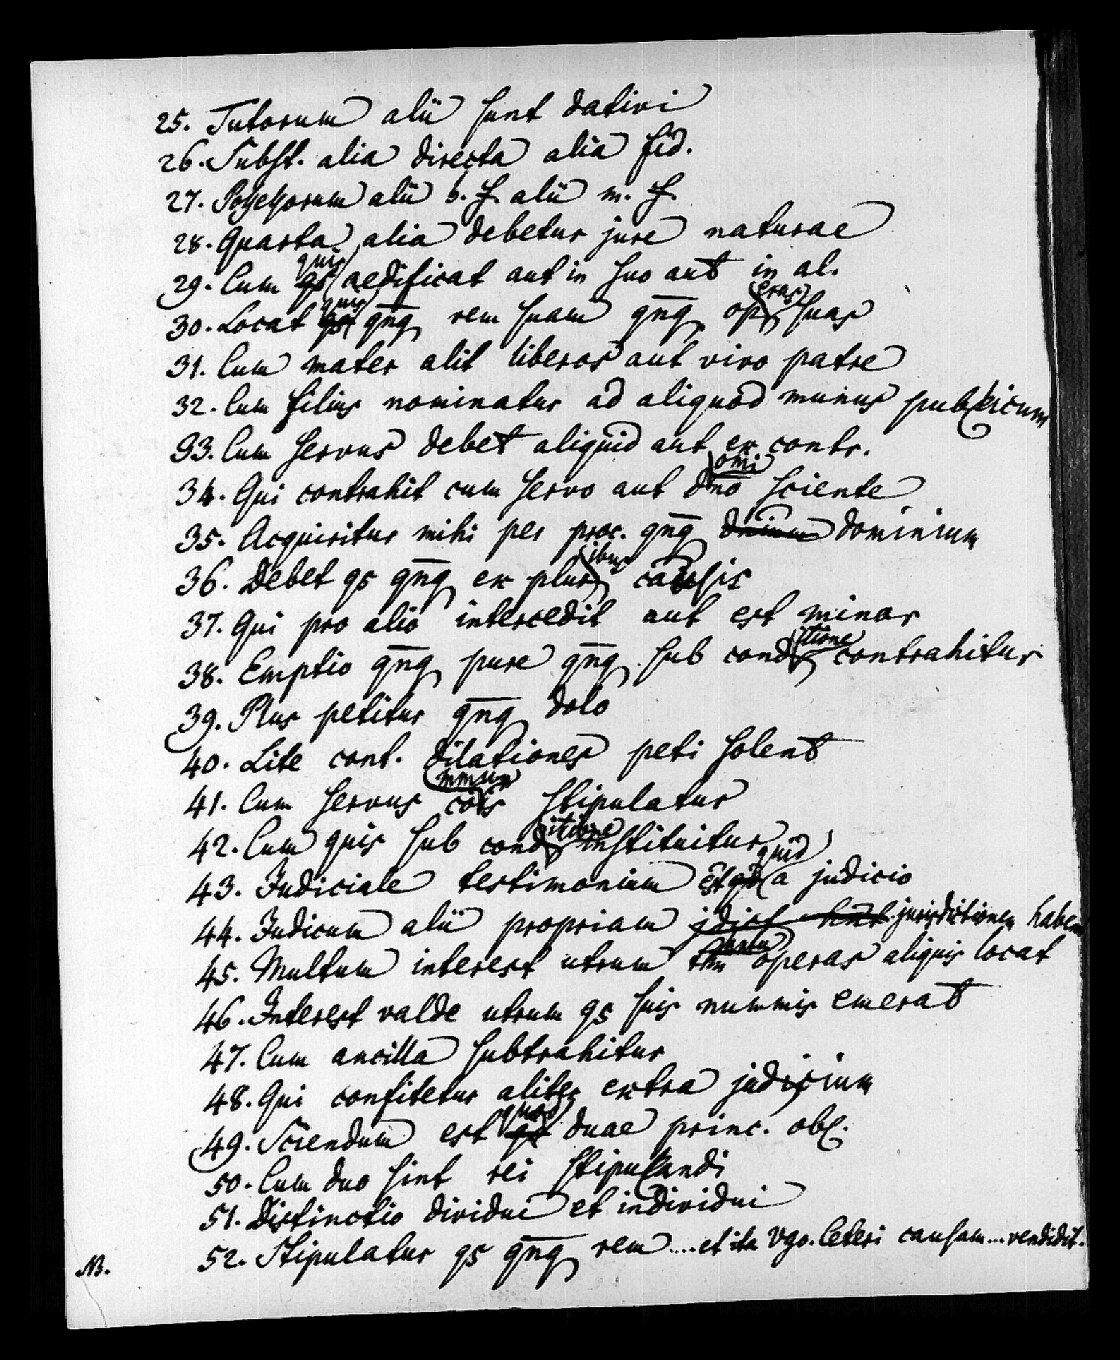 25. Tutorum alii sunt dativi
26. Subst. alia directa alia fid.
27. Possessorum alii b. f. alii m. f.
28. Quarta alia debetur jure naturae
29. Cum quis aedificat aut in suo aut in al.
30. Locat quis qnq rem suam qnq operas suas
31. Cum mater alit liberos aut vivo patre
32. Cum filius nominatur ad aliquod munus publicum
33. Cum servus debet aliquid aut ex contr.
34. Qui contrahit cum servo aut domino sciente
35. Acquiritur mihi per proc. qnq dominium
36. Debet qs qnq ex pluribus causis
37. Qui pro alio intercedit aut est minor
38. Emptio qnq pure qnq sub conditione contrahitur
39. Plus petitur qnq dolo
40. Lite cont. dilationes peti solent
41. Cum servus communis stipulatur
42. Cum quis sub conditione instituitur
43. Judiciale testimonium est quid a judicio
44. Judicum alii propriam jurisdictionem habent
45. Multum interest utrum operas aliquis locat
46. Interest valde utrum qs suis nummis emerat
47. Cum ancilla subtrahitur
48. Qui confitetur aliter extra judicium
49. Sciendum est quod duae princ. obl.
50. Cum duo sint rei stipulandi
51. Distinctio dividui et individui
NB. 52. Stipulatur qs qnq rem .... et ita Vgo. Ceteri causam ... vendidit.